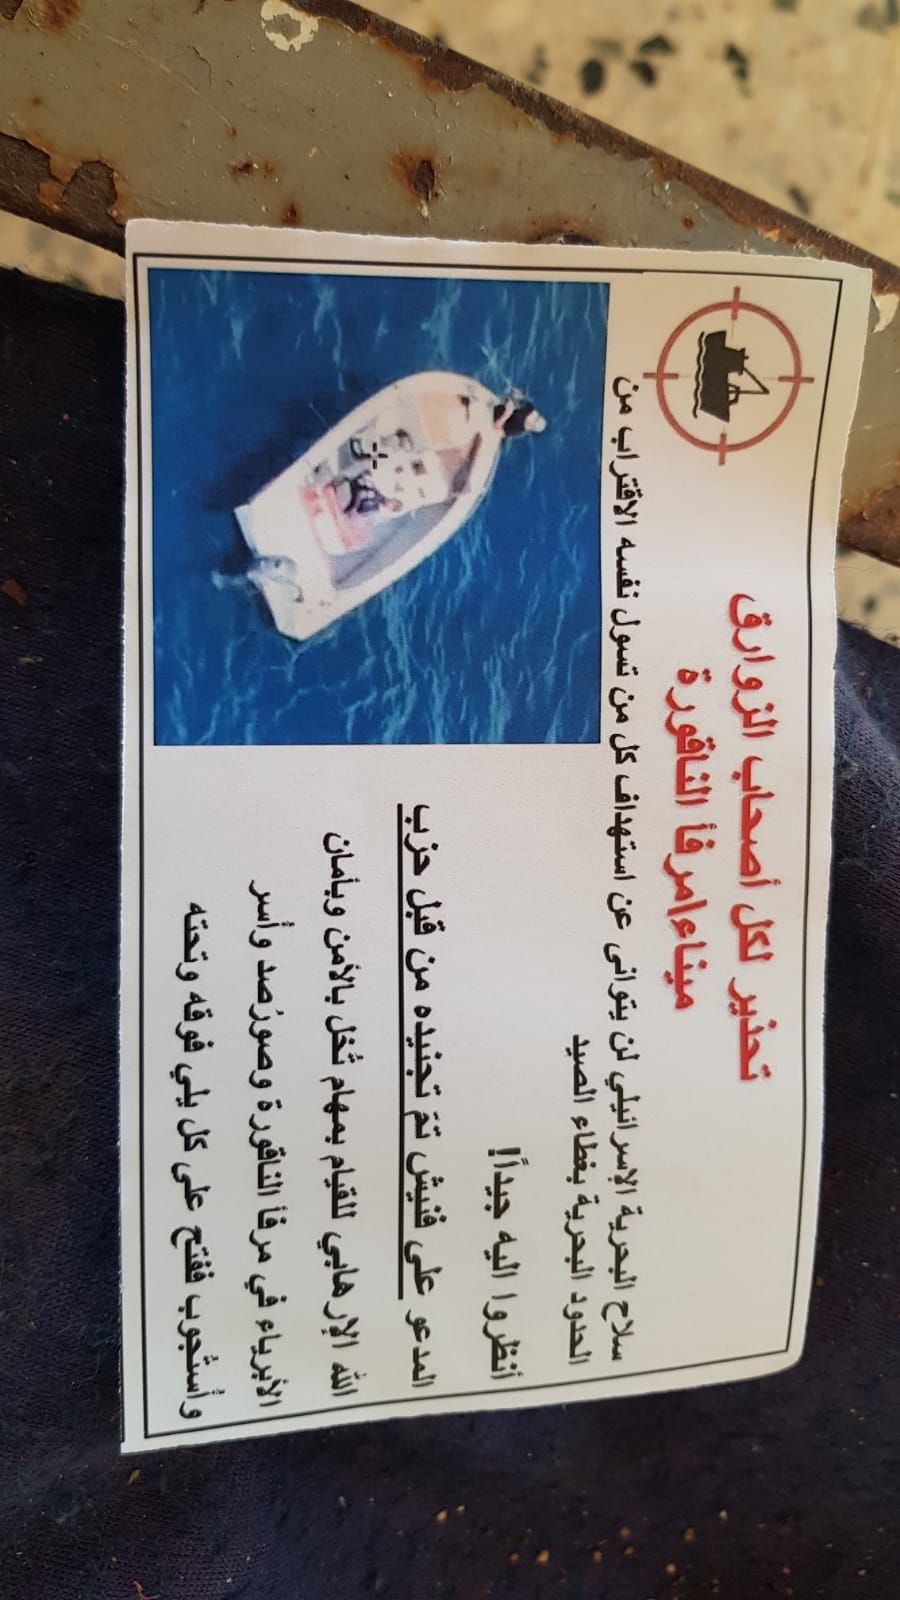 تحذير لكل أصحاب الزوارق
ميناء/مرفأ الناقورة
سلاح البحرية الإسرائيلي لن يتوانى عن استهداف كل من تسول نفسه الاقتراب من
الحدود البحرية بغطاء الصيد
أنظروا اليه جيداً!
المدعو علي فنيش تمّ تجنيده من قبل حزب
الله الإرهابي للقيام بمهام تُخل بالأمن وبأمان
الأبرياء في مرفأ الناقورة وصورُصد وأسر
وأستُجوب ففتح على كل يلي فوقه وتحته